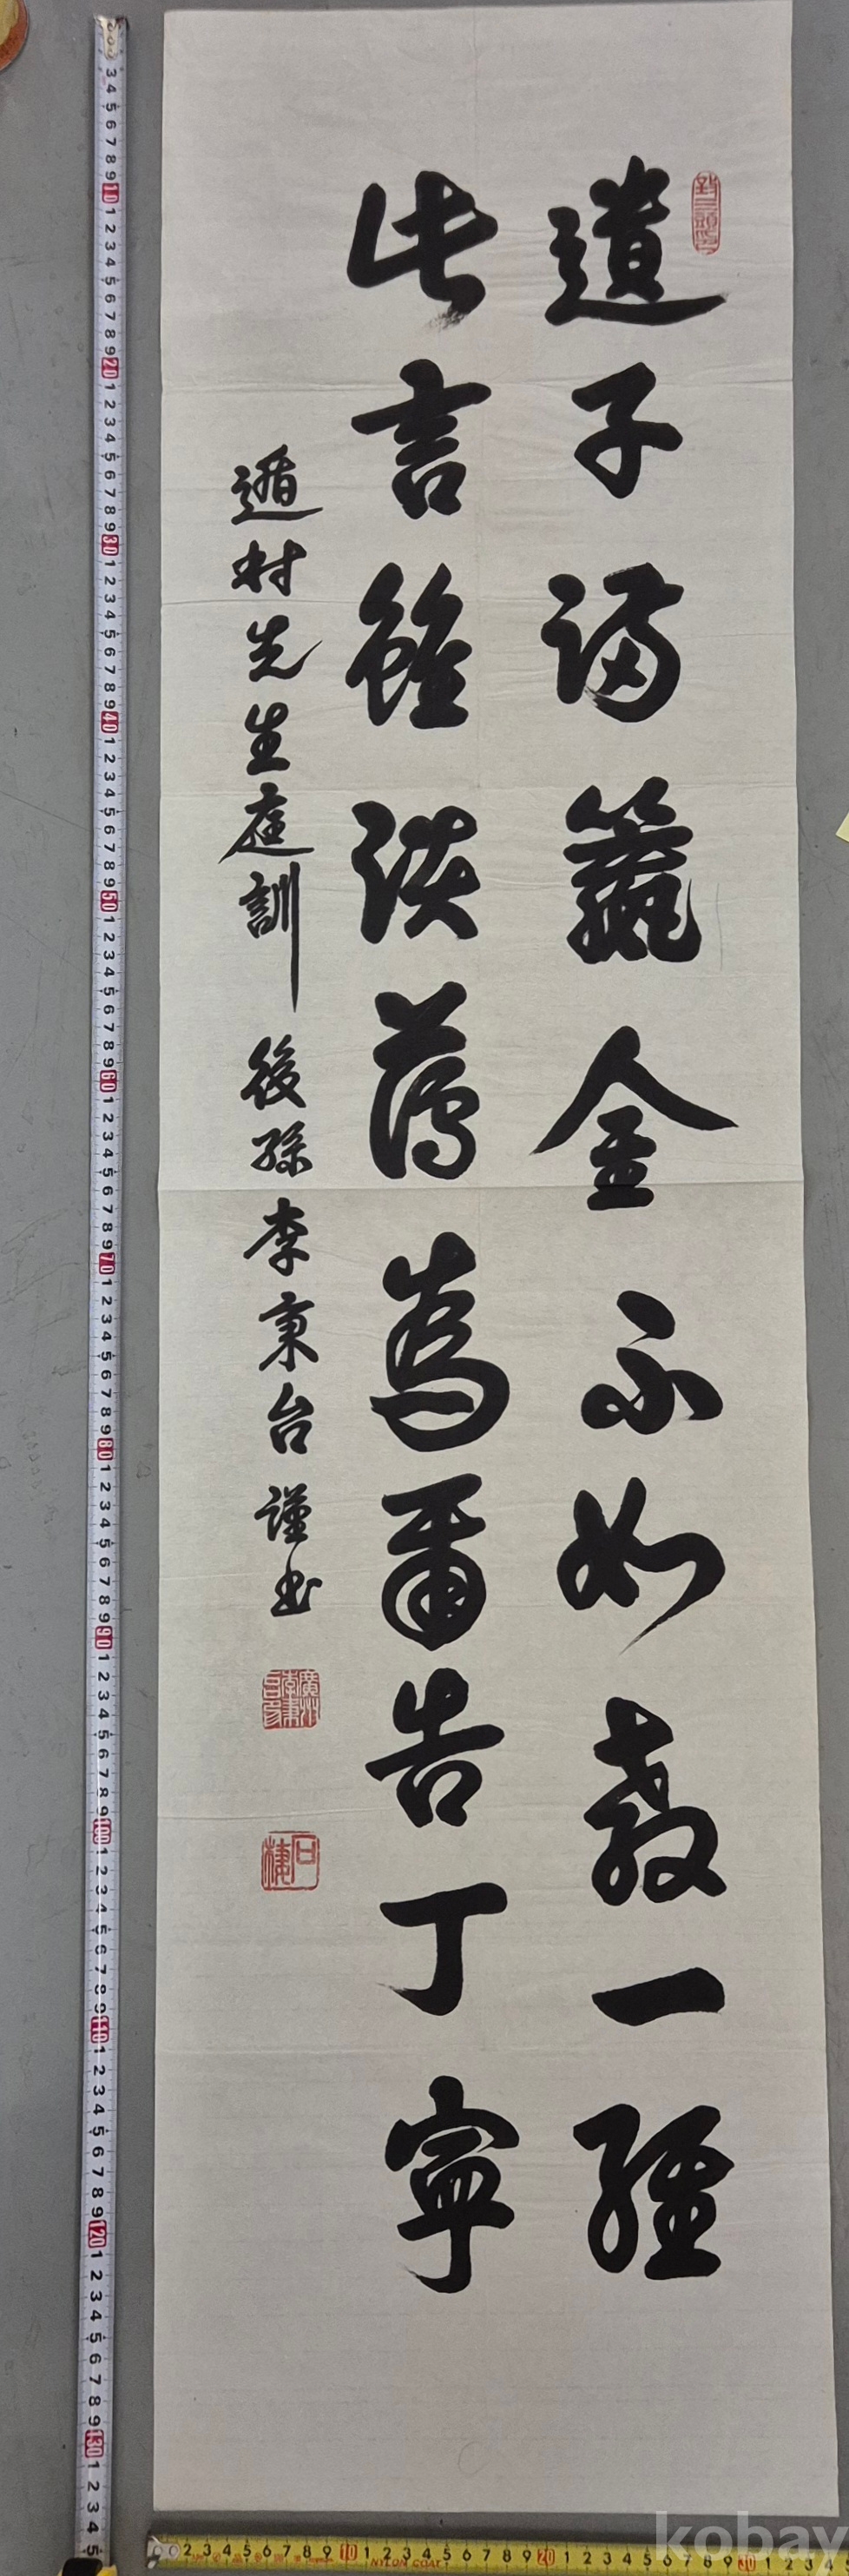 遺子滿籯金不如教一經
此言雖淡薄為爾告丁寧
遁村先生庭訓 後孫李秉台 謹書
kobay